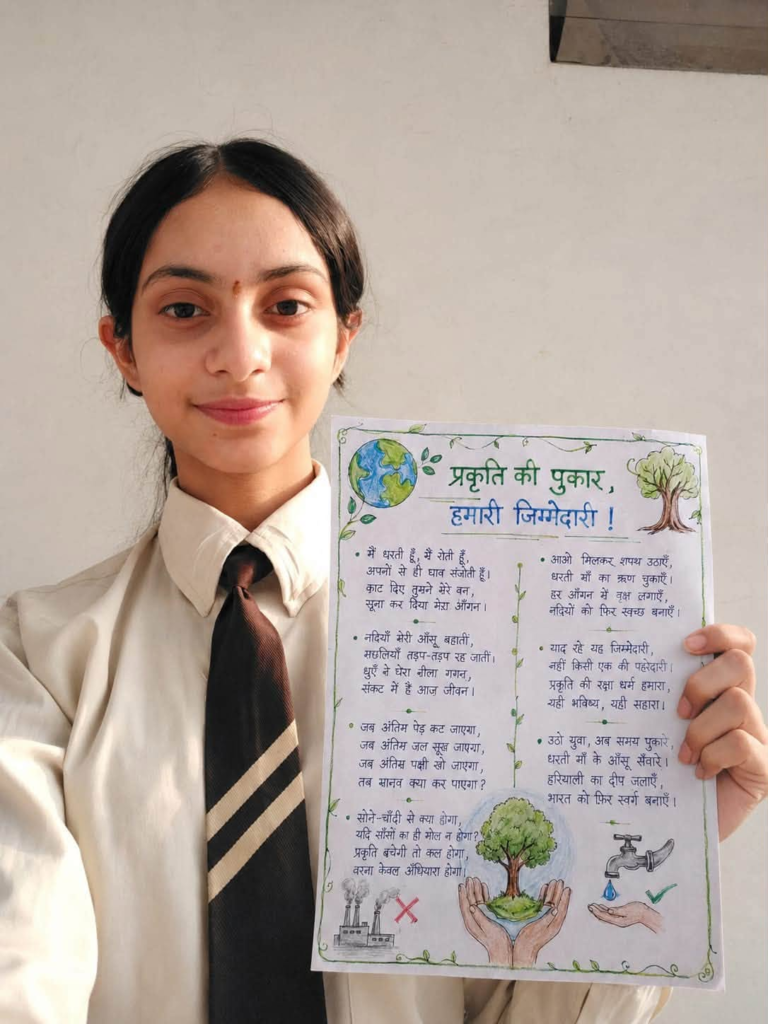 प्रकृति की पुकार,
हमारी जिम्मेदारी !
मैं धरती हूँ, मैं रोती हूँ,
अपनों से ही घाव संजोती हूँ।
काट दिए तुमने मेरे वन,
सूना कर दिया मेरा आँगन।
नदियाँ मेरी आँसू बहातीं,
मछलियाँ तड़प-तड़प रह जातीं।
धुएँ ने घेरा नीला गगन,
संकट में है आज जीवन।
जब अंतिम पेड़ कट जाएगा,
जब अंतिम जल सूख जाएगा,
जब अंतिम पक्षी खो जाएगा,
तब मानव क्या कर पाएगा?
सोने-चाँदी से क्या होगा,
यदि साँसों का ही मोल न होगा?
प्रकृति बचेगी तो कल होगा,
वरना केवल अँधियारा होगा।
आओ मिलकर शपथ उठाएँ,
धरती माँ का ऋण चुकाएँ।
हर आँगन में वृक्ष लगाएँ,
नदियों को फिर स्वच्छ बनाएँ।
याद रहे यह जिम्मेदारी,
नहीं किसी एक की पहरेदारी।
प्रकृति की रक्षा धर्म हमारा,
यही भविष्य, यही सहारा।
उठो युवा, अब समय पुकारे,
धरती माँ के आँसू सँवारे।
हरियाली का दीप जलाएँ,
भारत को फिर स्वर्ग बनाएँ।